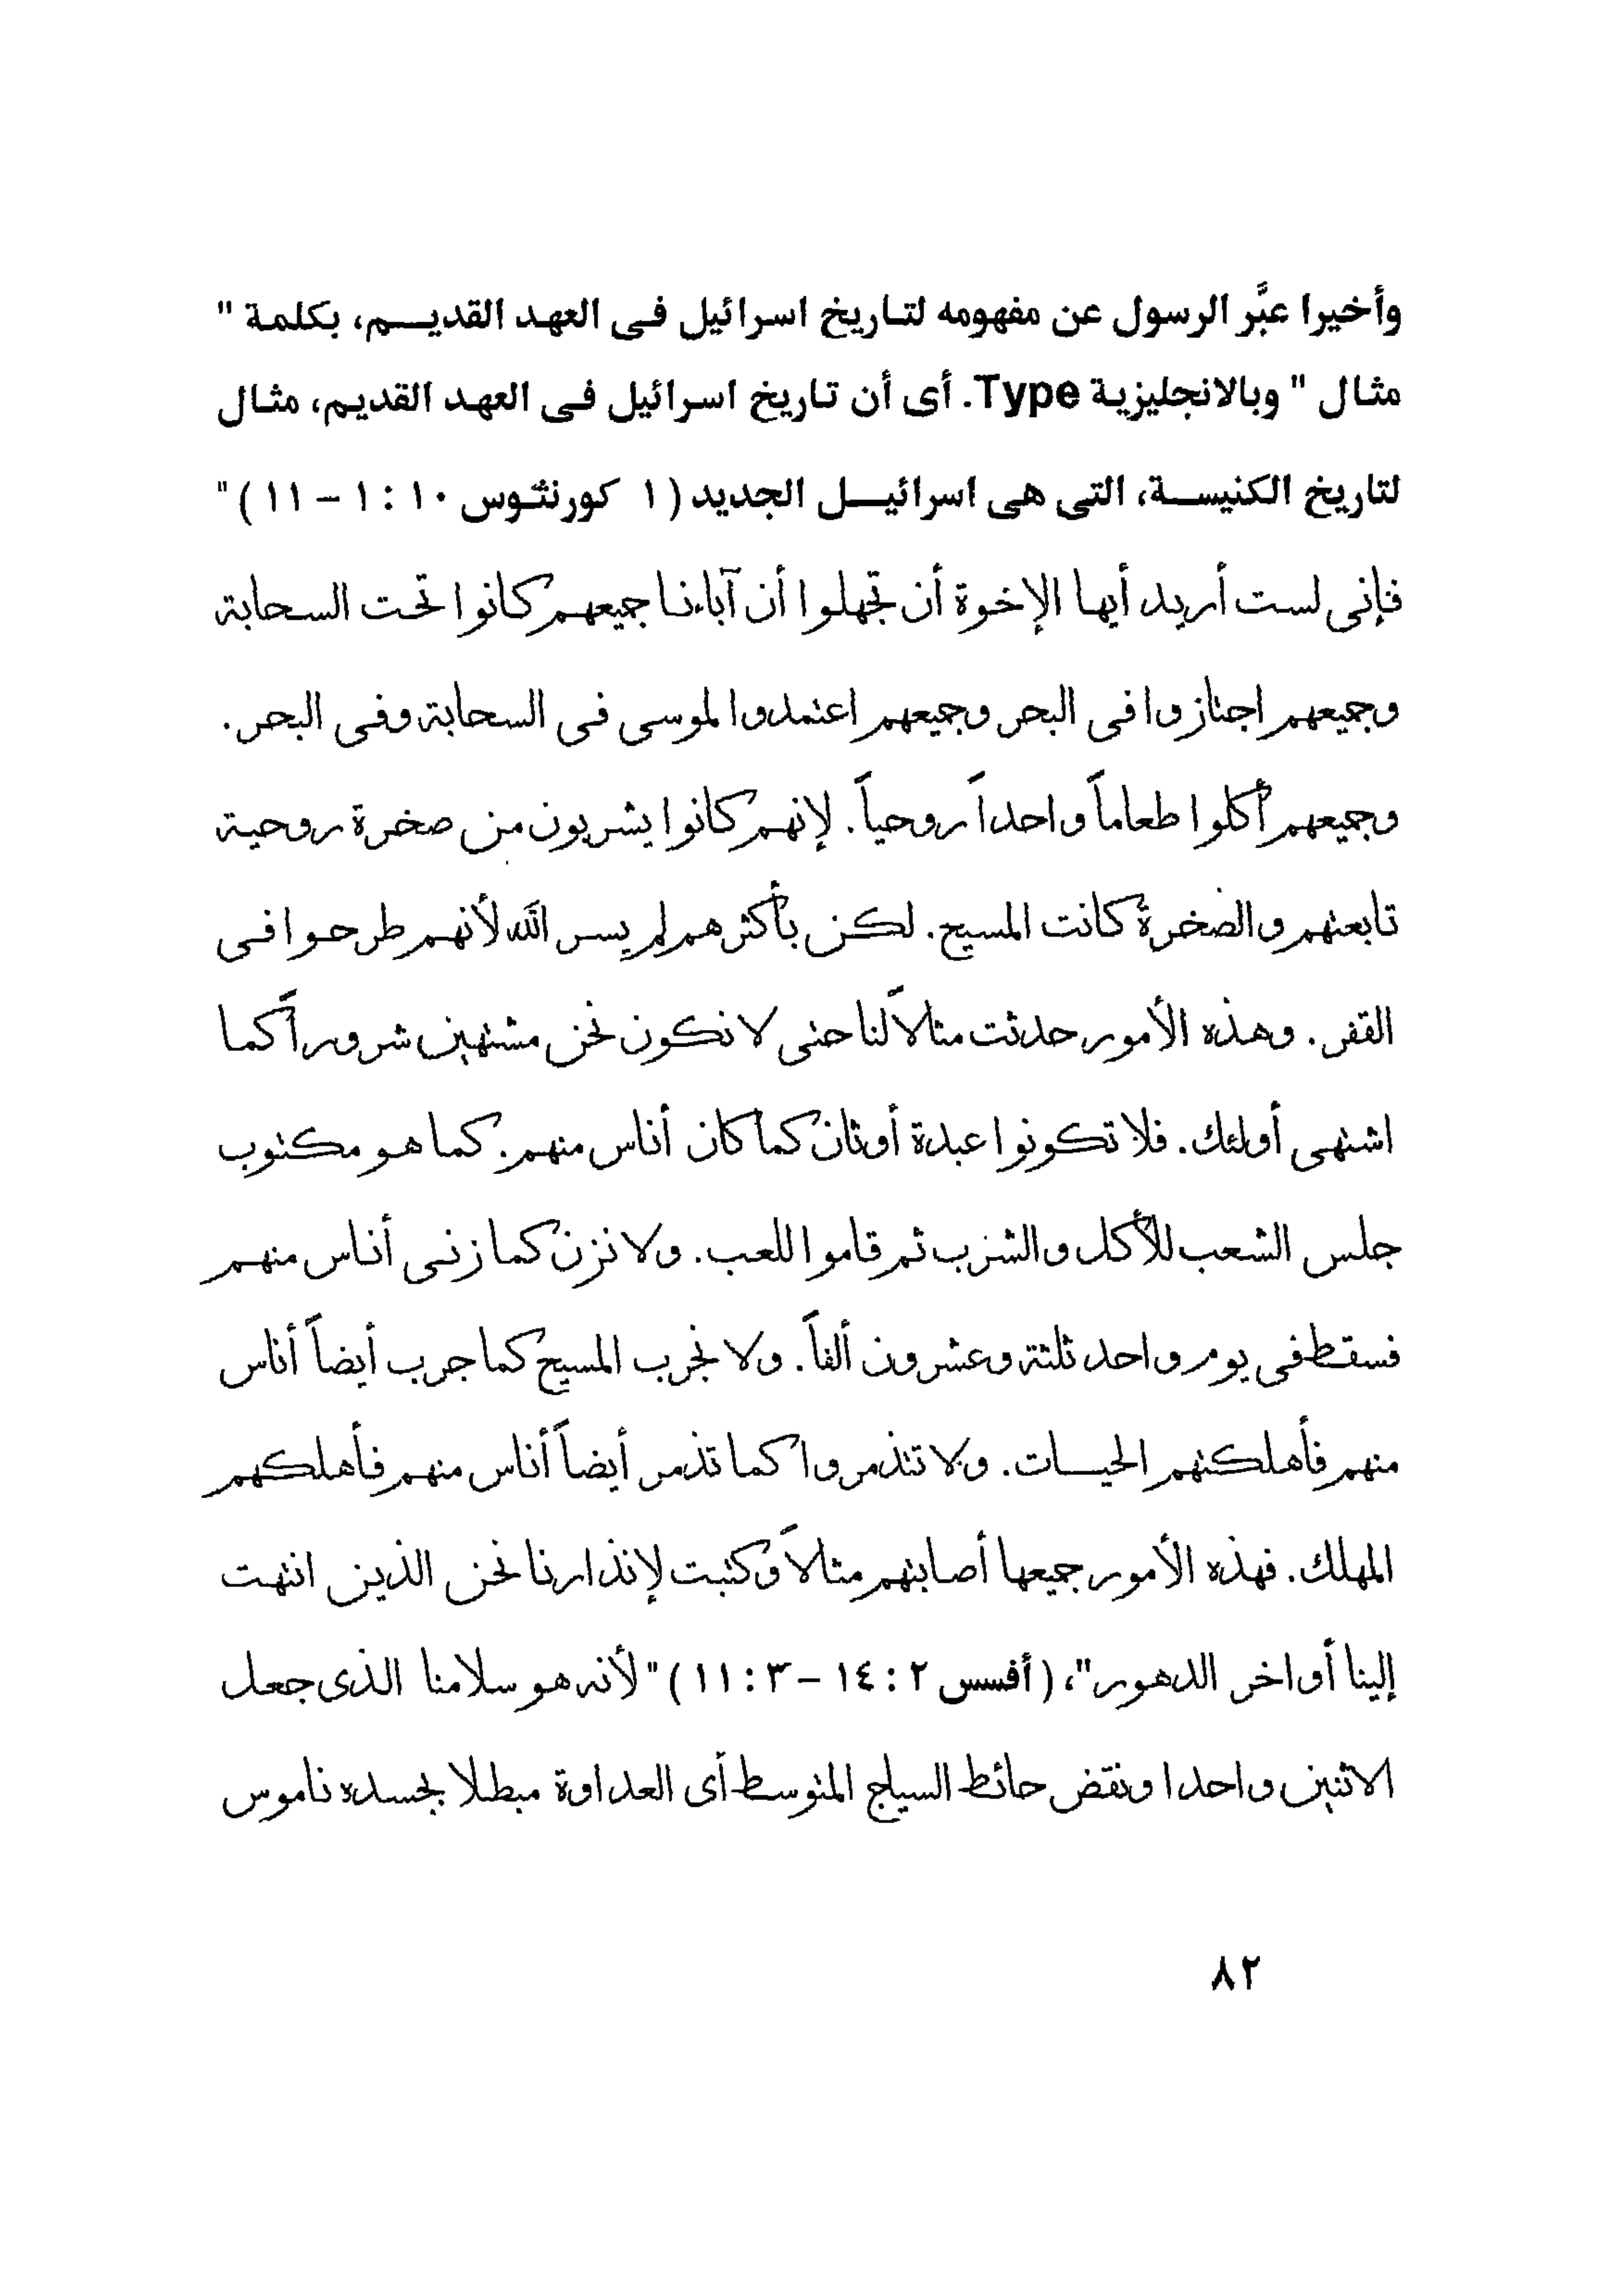 وأخيرا عبَّر الرسول عن مفهومه لتاريخ اسرائيل فى العهد القديم، بكلمة "
مثال " وبالانجليزية Type. أى أن تاريخ اسرائيل فى العهد القديم، مثال
لتاريخ الكنيسة، التى هى اسرائيل الجديد ( ١ كورنثوس ١٠ : ١ – ١١ ) "
فإنى لست أريد أيها الإخوة أن تجهلوا أن آباءنا جميعهم كانوا تحت السحابة
وجميعهم اجتازوا فى البحر وجميعهم اعتمدوا لموسى فى السحابة وفى البحر.
وجميعهم أكلوا طعاماً واحداً روحياً. لإنهم كانوا يشربون من صخرة روحية
تابعتهم والصخرة كانت المسيح. لكن بأكثرهم لم يسر الله لأنهم طرحوا فى
القفر. وهذه الأمور حدثت مثالاً لنا حتى لا نكون نحن مشتهين شروراً كما
اشتهى أولئك. فلا تكونوا عبدة أوثان كما كان أناس منهم. كما هو مكتوب
جلس الشعب للأكل والشرب ثم قاموا للعب. ولا نزن كما زنى أناس منهم
فسقط فى يوم واحد ثلثة وعشرون ألفاً. ولا نجرب المسيح كما جرب أيضاً أناس
منهم فأهلكتهم الحيات. ولا تتذمروا كما تذمر أيضاً أناس منهم فأهلكهم
المهلك. فهذه الأمور جميعها أصابتهم مثالاً وكتبت لإنذارنا نحن الذين انتهت
إلينا أواخر الدهور"، ( أفسس ٢ : ١٤ – ٣ : ١١ ) " لأنه هو سلامنا الذى جعل
الاثنين واحدا ونقض حائط السياج المتوسط أى العداوة مبطلا بجسده ناموس
٨٢